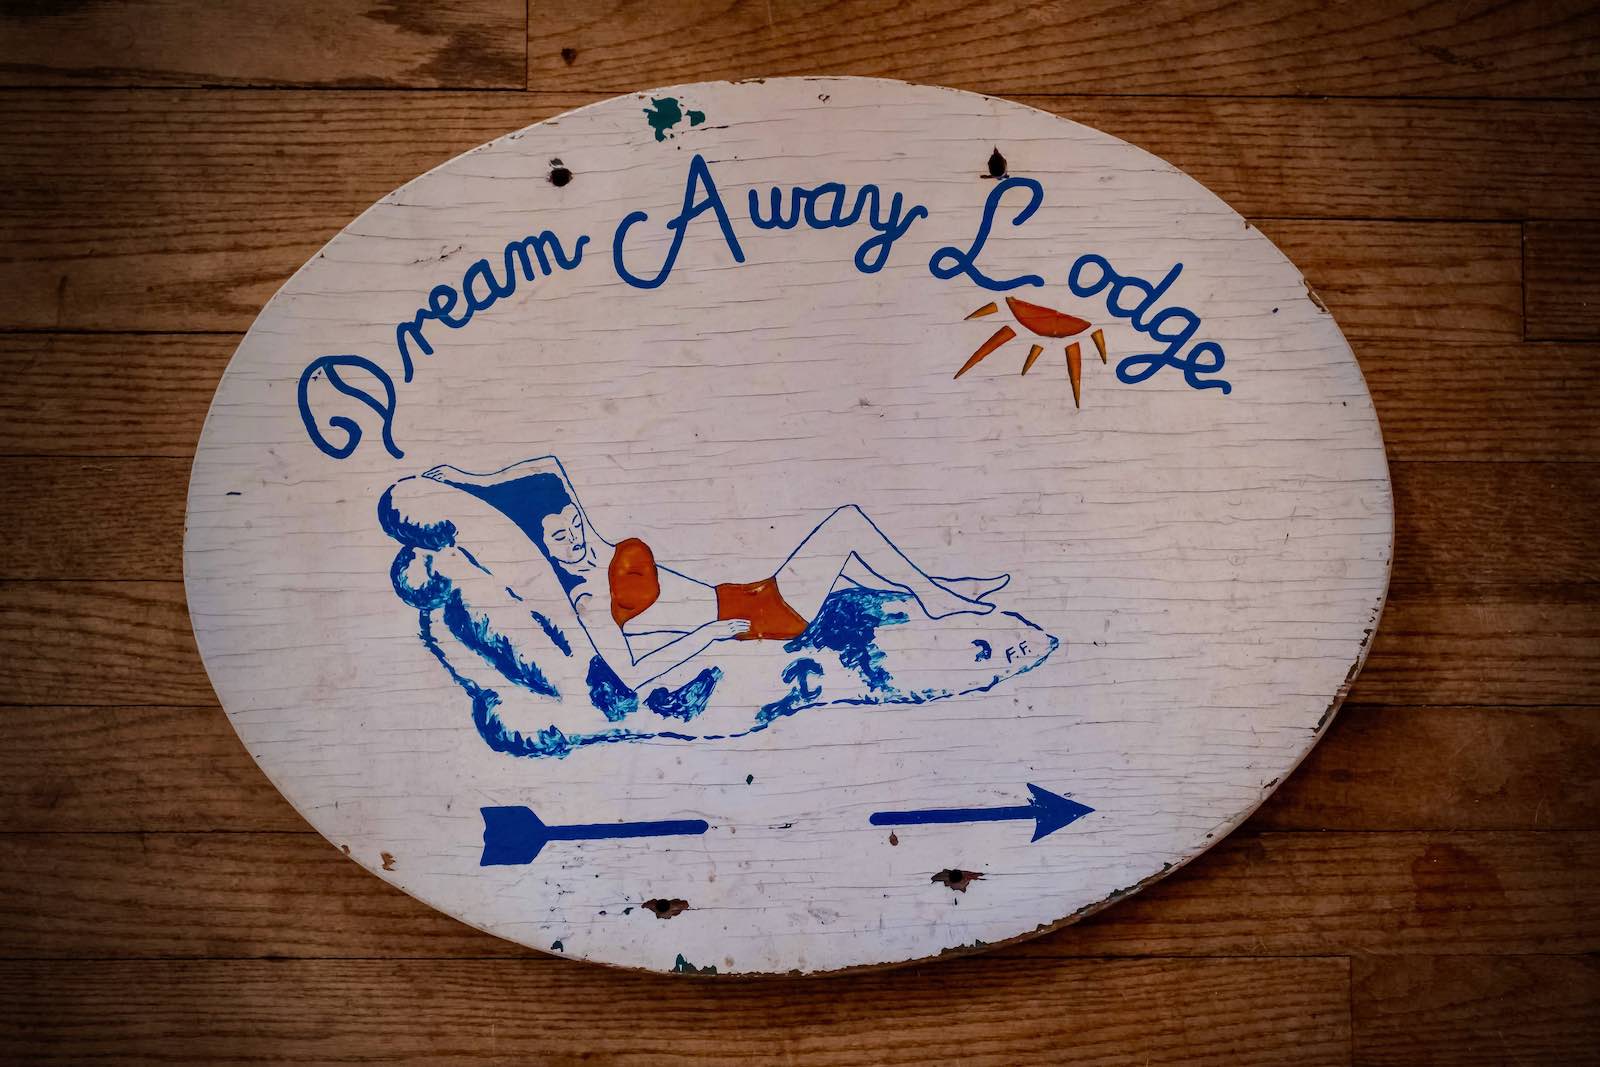 Dream Away Lodge
F.F.